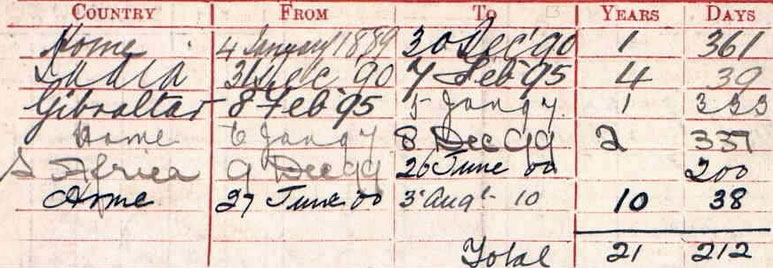 COUNTRY FROM TO YEARS DAYS
Home 4 January 1889 30 Dec' 90 1 361
India 31 Dec 90 7 Feb '95 4 39
Gibraltar 8 Feb '95 5 Jan 97 1 333
Home 6 Jan 97 8 Dec 99 2 337
S Africa 9 Dec 99 26 June 00 200
Home 27 June 00 3 Augt - 10 10 38
Total 21 212